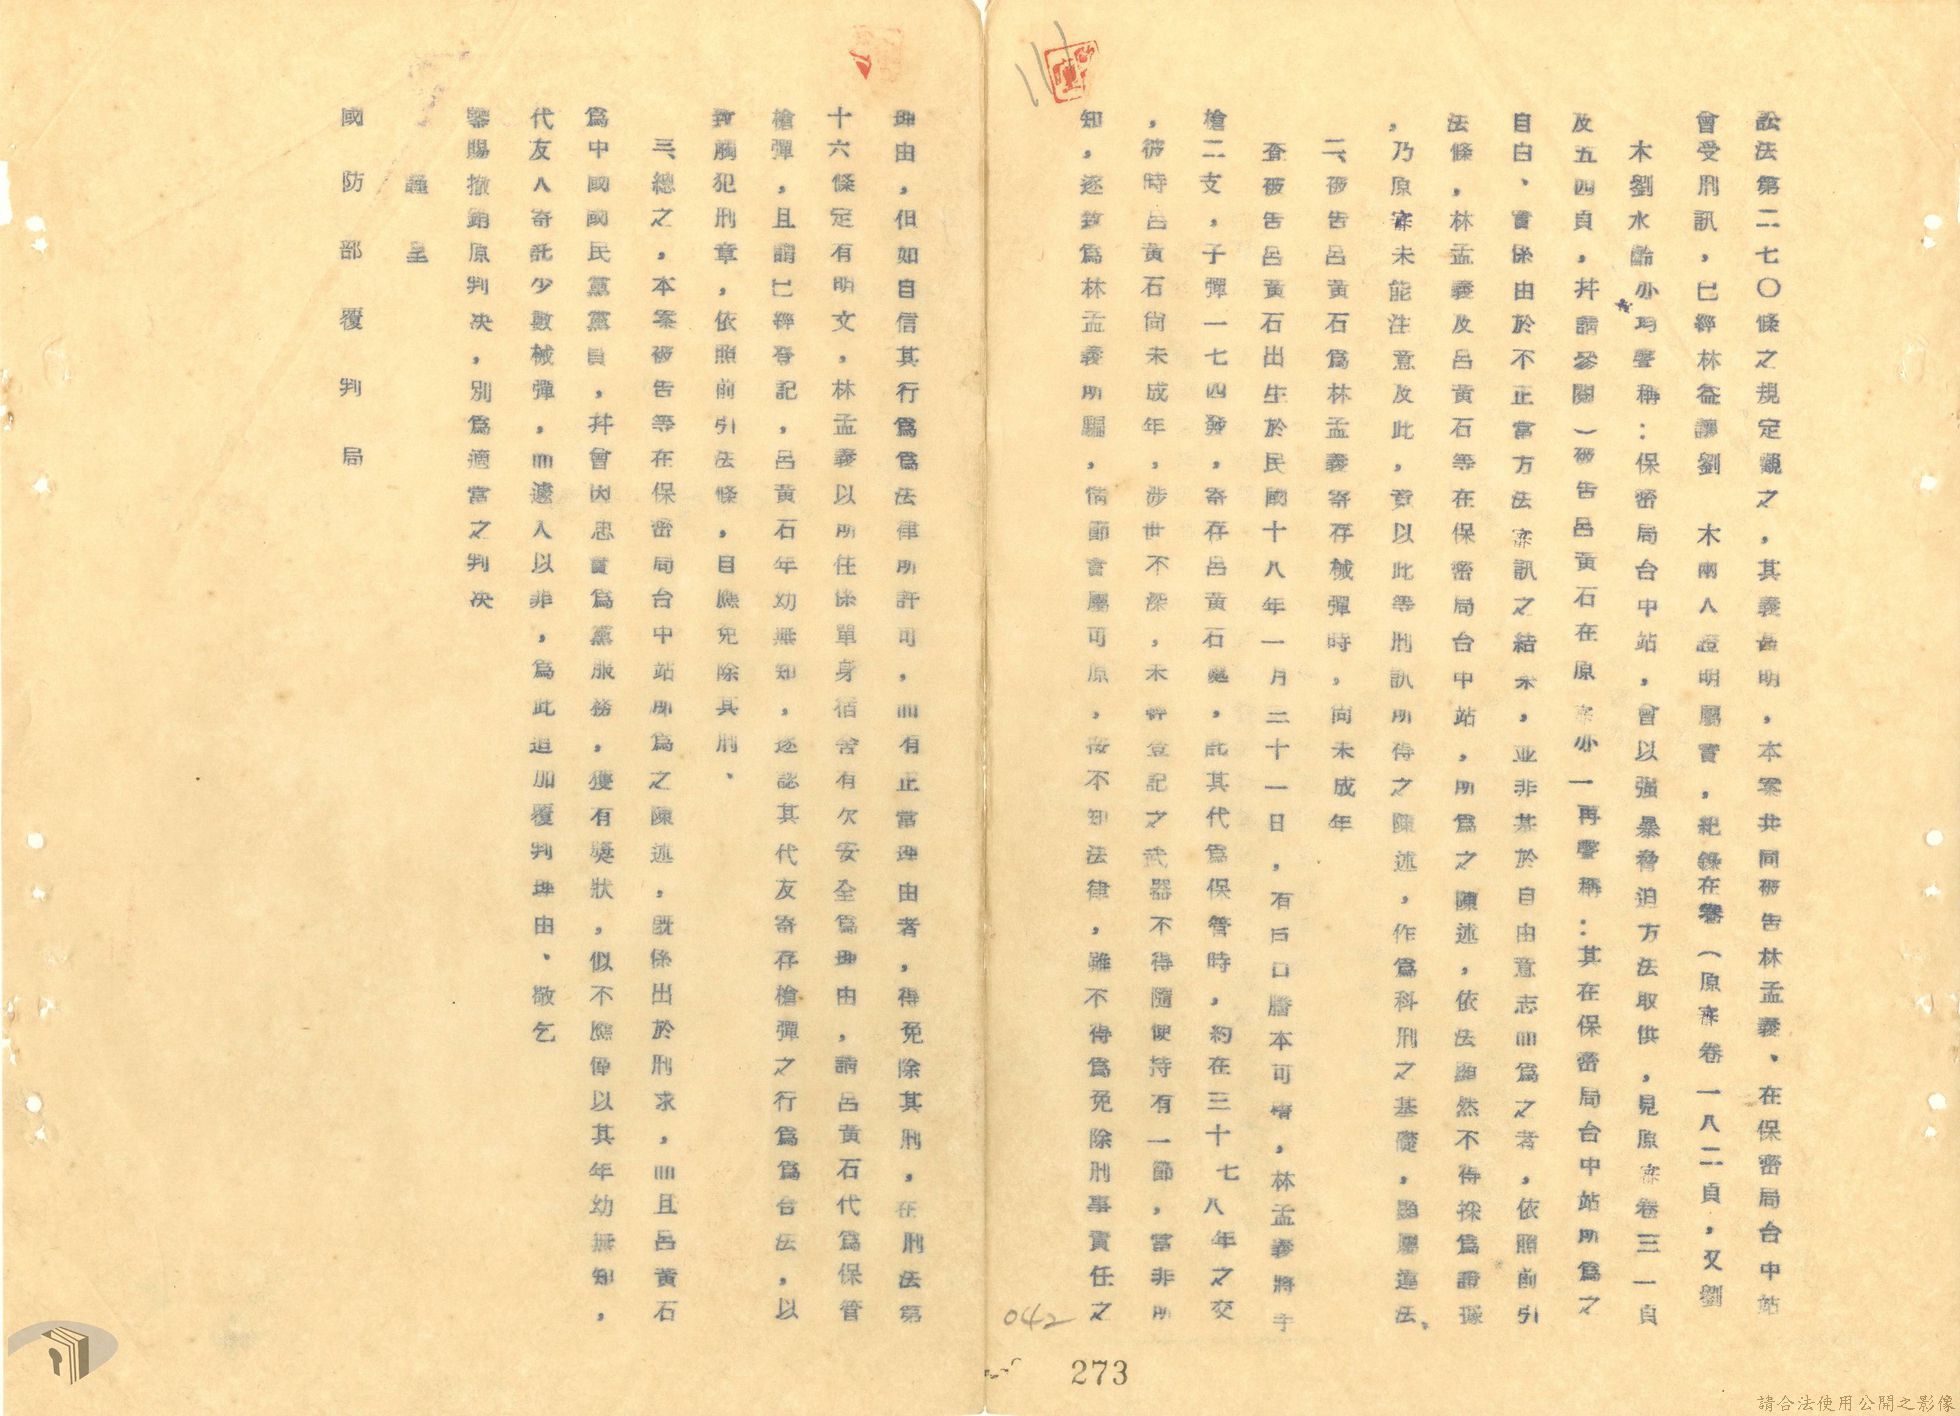 訟法第二七〇條之規定觀之，其義甚明，本案共同被告林孟義、在保密局台中站
會受刑訊，已經林益謙劉　木兩人證明屬實，紀錄在卷（原審卷一八二頁，又劉
木劉水齡亦均聲稱：保密局台中站，會以强暴脅迫方法取供，見原審卷三一頁
及五四頁，并請參閱）被告呂黃石在原審亦一再聲稱：其在保密局台中站所為之
自白、實係由於不正當方法審訊之結果，並非基於自由意志而為之者，依照前引
法條，林孟義及呂黃石等在保密局台中站，所為之陳述，依法顯然不得採為證據
，乃原審未能注意及此，竟以此等刑訊所得之陳述，作為科刑之基礎，顯屬違法、
二、被告呂黃石為林孟義寄存械彈時，尚未成年
查被告呂黃石出生於民國十八年一月二十一日，有戶口謄本可稽，林孟義將手
槍二支，子彈一七四發，寄存呂黃石處，託其代為保管時，約在三十七八年之交
，彼時呂黃石尚未成年，涉世不深，未經登記之武器不得隨便持有一節，當非所
知，遂致為林孟義所騙，情節實屬可原，按不知法律，雖不得為免除刑事責任之
理由，但如自信其行為為法律所許可，而有正當理由者，得免除其刑，在刑法第
十六條定有明文，林孟義以所住係單身宿舍有欠安全為理由，請呂黃石代為保管
槍彈，且謂已經登記，呂黃石年幼無知，遂認其代友寄存槍彈之行為為合法，以
致觸犯刑章，依照前引法條，自應免除其刑、
三、總之，本案被告等在保密局台中站所為之陳述，既係出於刑求，而且呂黃石
為中國國民黨黨員，并會因忠實為黨服務，獲有獎狀，似不應僅以其年幼無知，
代友人寄託少數械彈，而遽入以非，為此追加覆判理由、敬乞
鑒賜撤銷原判決，別為適當之判決
謹　呈
國防部覆判局
042
273
請合法使用公開之影像